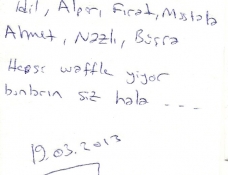 İdil, Alper, Fırat, Mustafa
Ahmet, Nazlı, Büşra
Hepsi waffle yiyor
bunların siz hala ---
19.03.2013